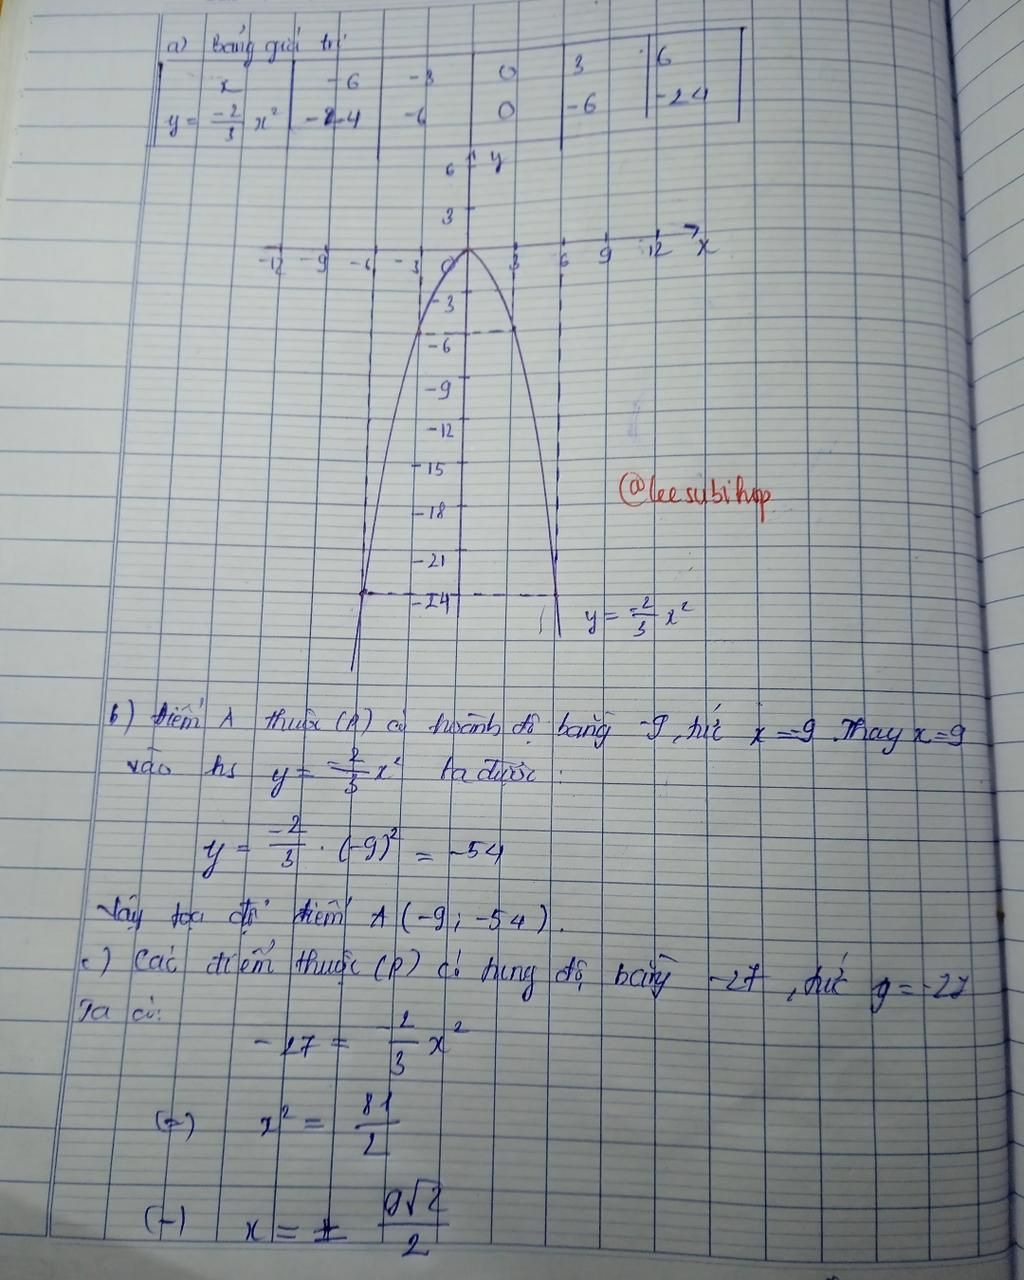 a) Bảng giá trị
x -6 -3 0 3 6
y = -2/3 x² -24 -6 0 -6 -24
y
6
3
-12 -9 -6 -3 0 3 6 9 12 x
-3
-6
-9
-12
-15
-18
-21
-24
@leesubihop
y = -2/3 x²
b) Điểm A thuộc (P) có hoành độ bằng -9, tức x = -9. Thay x = 9
vào hs y = -2/3 x² ta được:
y = -2/3 . (-9)² = -54
Vậy tọa độ điểm A (-9; -54).
c) Các điểm thuộc (P) có tung độ bằng -27, tức y = -27
Ta có:
-27 = -2/3 x²
(=) x² = 81/2
(=) x = ± 9√2/2